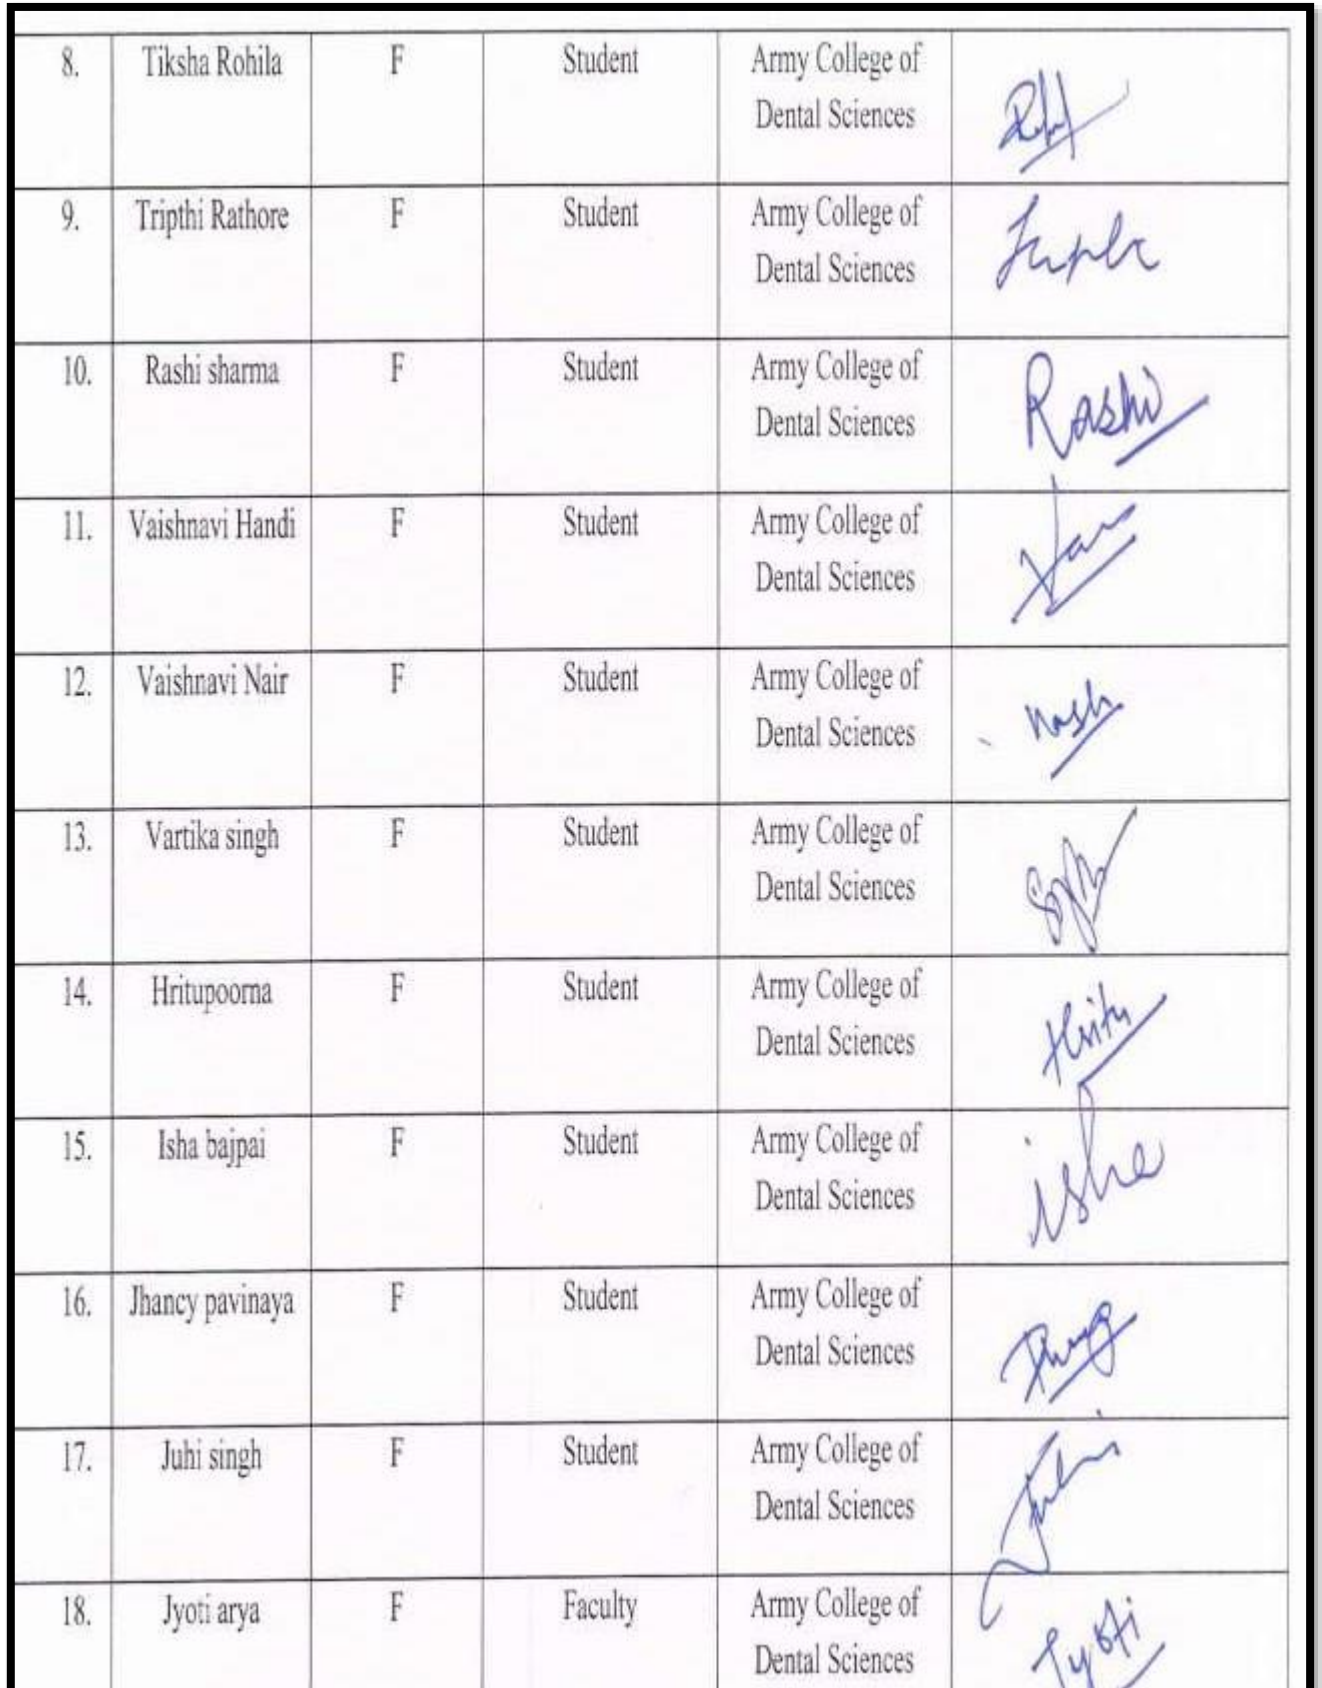 8. Tiksha Rohila F Student Army College of
Dental Sciences
9. Tripthi Rathore F Student Army College of
Dental Sciences
10. Rashi sharma F Student Army College of
Dental Sciences Rashi
11. Vaishnavi Handi F Student Army College of
Dental Sciences
12. Vaishnavi Nair F Student Army College of
Dental Sciences
13. Vartika singh F Student Army College of
Dental Sciences
14. Hritupoorna F Student Army College of
Dental Sciences Hritu
15. Isha bajpai F Student Army College of
Dental Sciences isha
16. Jhancy pavinaya F Student Army College of
Dental Sciences
17. Juhi singh F Student Army College of
Dental Sciences Juhi
18. Jyoti arya F Faculty Army College of
Dental Sciences Jyoti